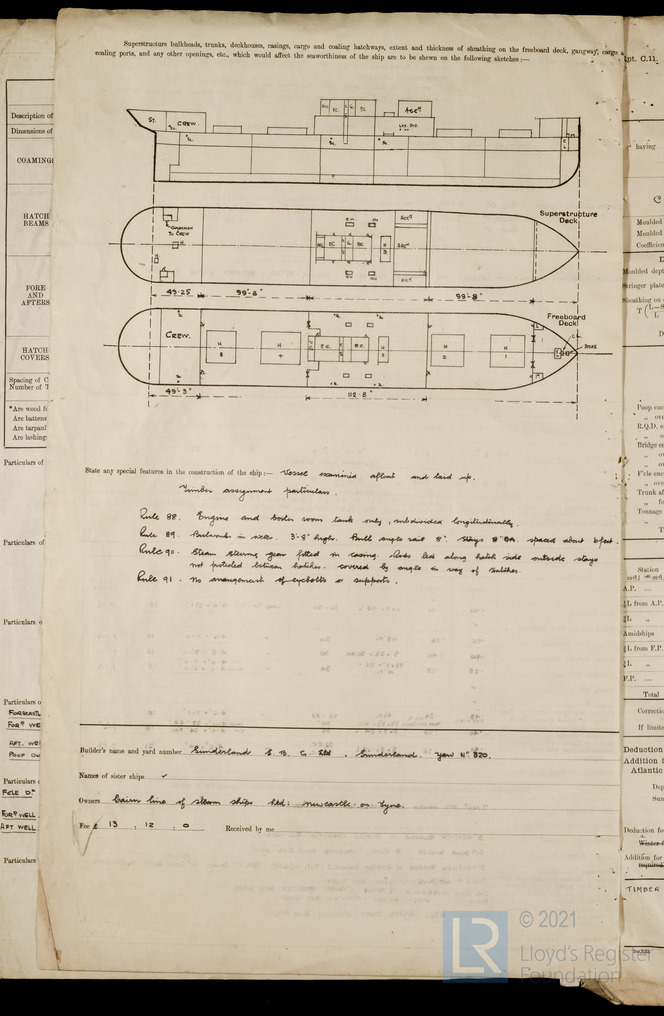 Superstructure bulkheads, trunks, deckhouses, casings, cargo and coaling hatchways, extent and thickness of sheathing on the freeboard deck, gangway, cargo
coaling ports, and any other openings, etc., which would affect the seaworthiness of the ship are to be shewn on the following sketches:—
St.
CREW.
BC.
Acct
Superstructure
Deck
CONDENSER
TO CREW
Acct
BC
49·25
99'-8"
99'-8"
Freeboard
Deck
CREW.
H
3
H
4
H
2
H
1
STORE
49'-3"
112-8"
State any special features in the construction of the ship:— Vessel examined afloat and laid up.
Timber assignment particulars.
Rule 88. Engine and boiler room tank only, subdivided longitudinally.
Rule 89. Bulwarks in wells. 3'-8" high. Bulb angle rail 8". Stays 8" BA. spaced about 6 feet.
Rule 90. Steam steering gear fitted in casing. Rods led along hatch side outside stays
not protected between hatches. covered by angle in way of hatches.
Rule 91. No arrangement of eyebolts or supports.
Builder's name and yard number Sunderland S. B. Co. Ltd. Sunderland. Yard No. 320.
Names of sister ships
Owners Cairn line of steam ships Ltd: Newcastle on Tyne.
Fee £ 13 : 12 : 0 Received by me
Description of
Dimensions of
COAMING
HATCH
BEAMS
FORE
AND
AFTERS
HATCH
COVERS
Spacing of C
Number of T
*Are wood f
Are battens
Are tarpaul
Are lashing
Particulars of
Particulars of
Particulars o
Particulars o
FORECASTL
FORD WE
AFT. WE
POOP D
Particulars
FCLE D
FORD WELL
AFT WELL
Particulars
pt. C.11.
having
Moulded
Moulded
Coefficien
Moulded dept
Stringer plate
Sheathing on
Poop enc
„ ov
R.Q.D. e
Bridge en
„ ov
F'cle enc
„ ove
Trunk af
„ fo
Tonnage
Station
A.P. ...
⅙L from A.P.
⅓L „
Amidships
⅓L from F.P.
⅙L „
F.P. ...
Total
Correctio
If limite
Deduction
Addition f
Atlantic
Dep
Sun
Deduction fo
Winter
Addition for
required
TIMBER
LR
© 2021
Lloyd's Register
Foundation